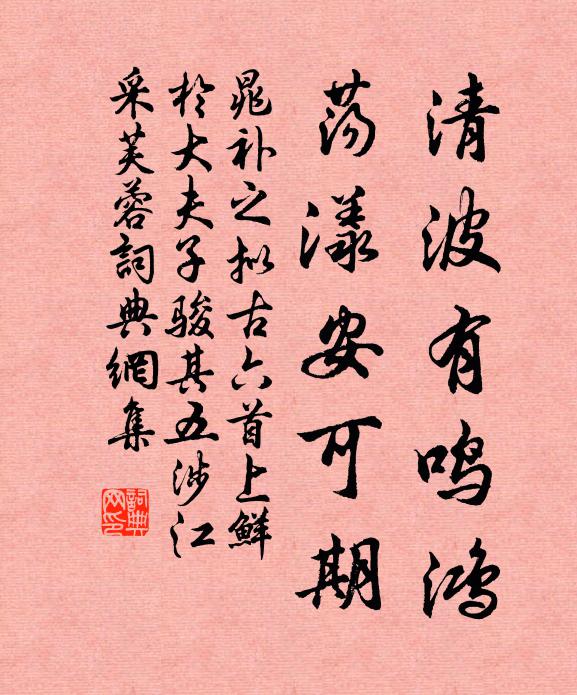 清波有鸣鸿
荡漾安可期
晁补之拟古六首上鲜
于大夫子骏其五涉江
采芙蓉詞典網集
詞典网印